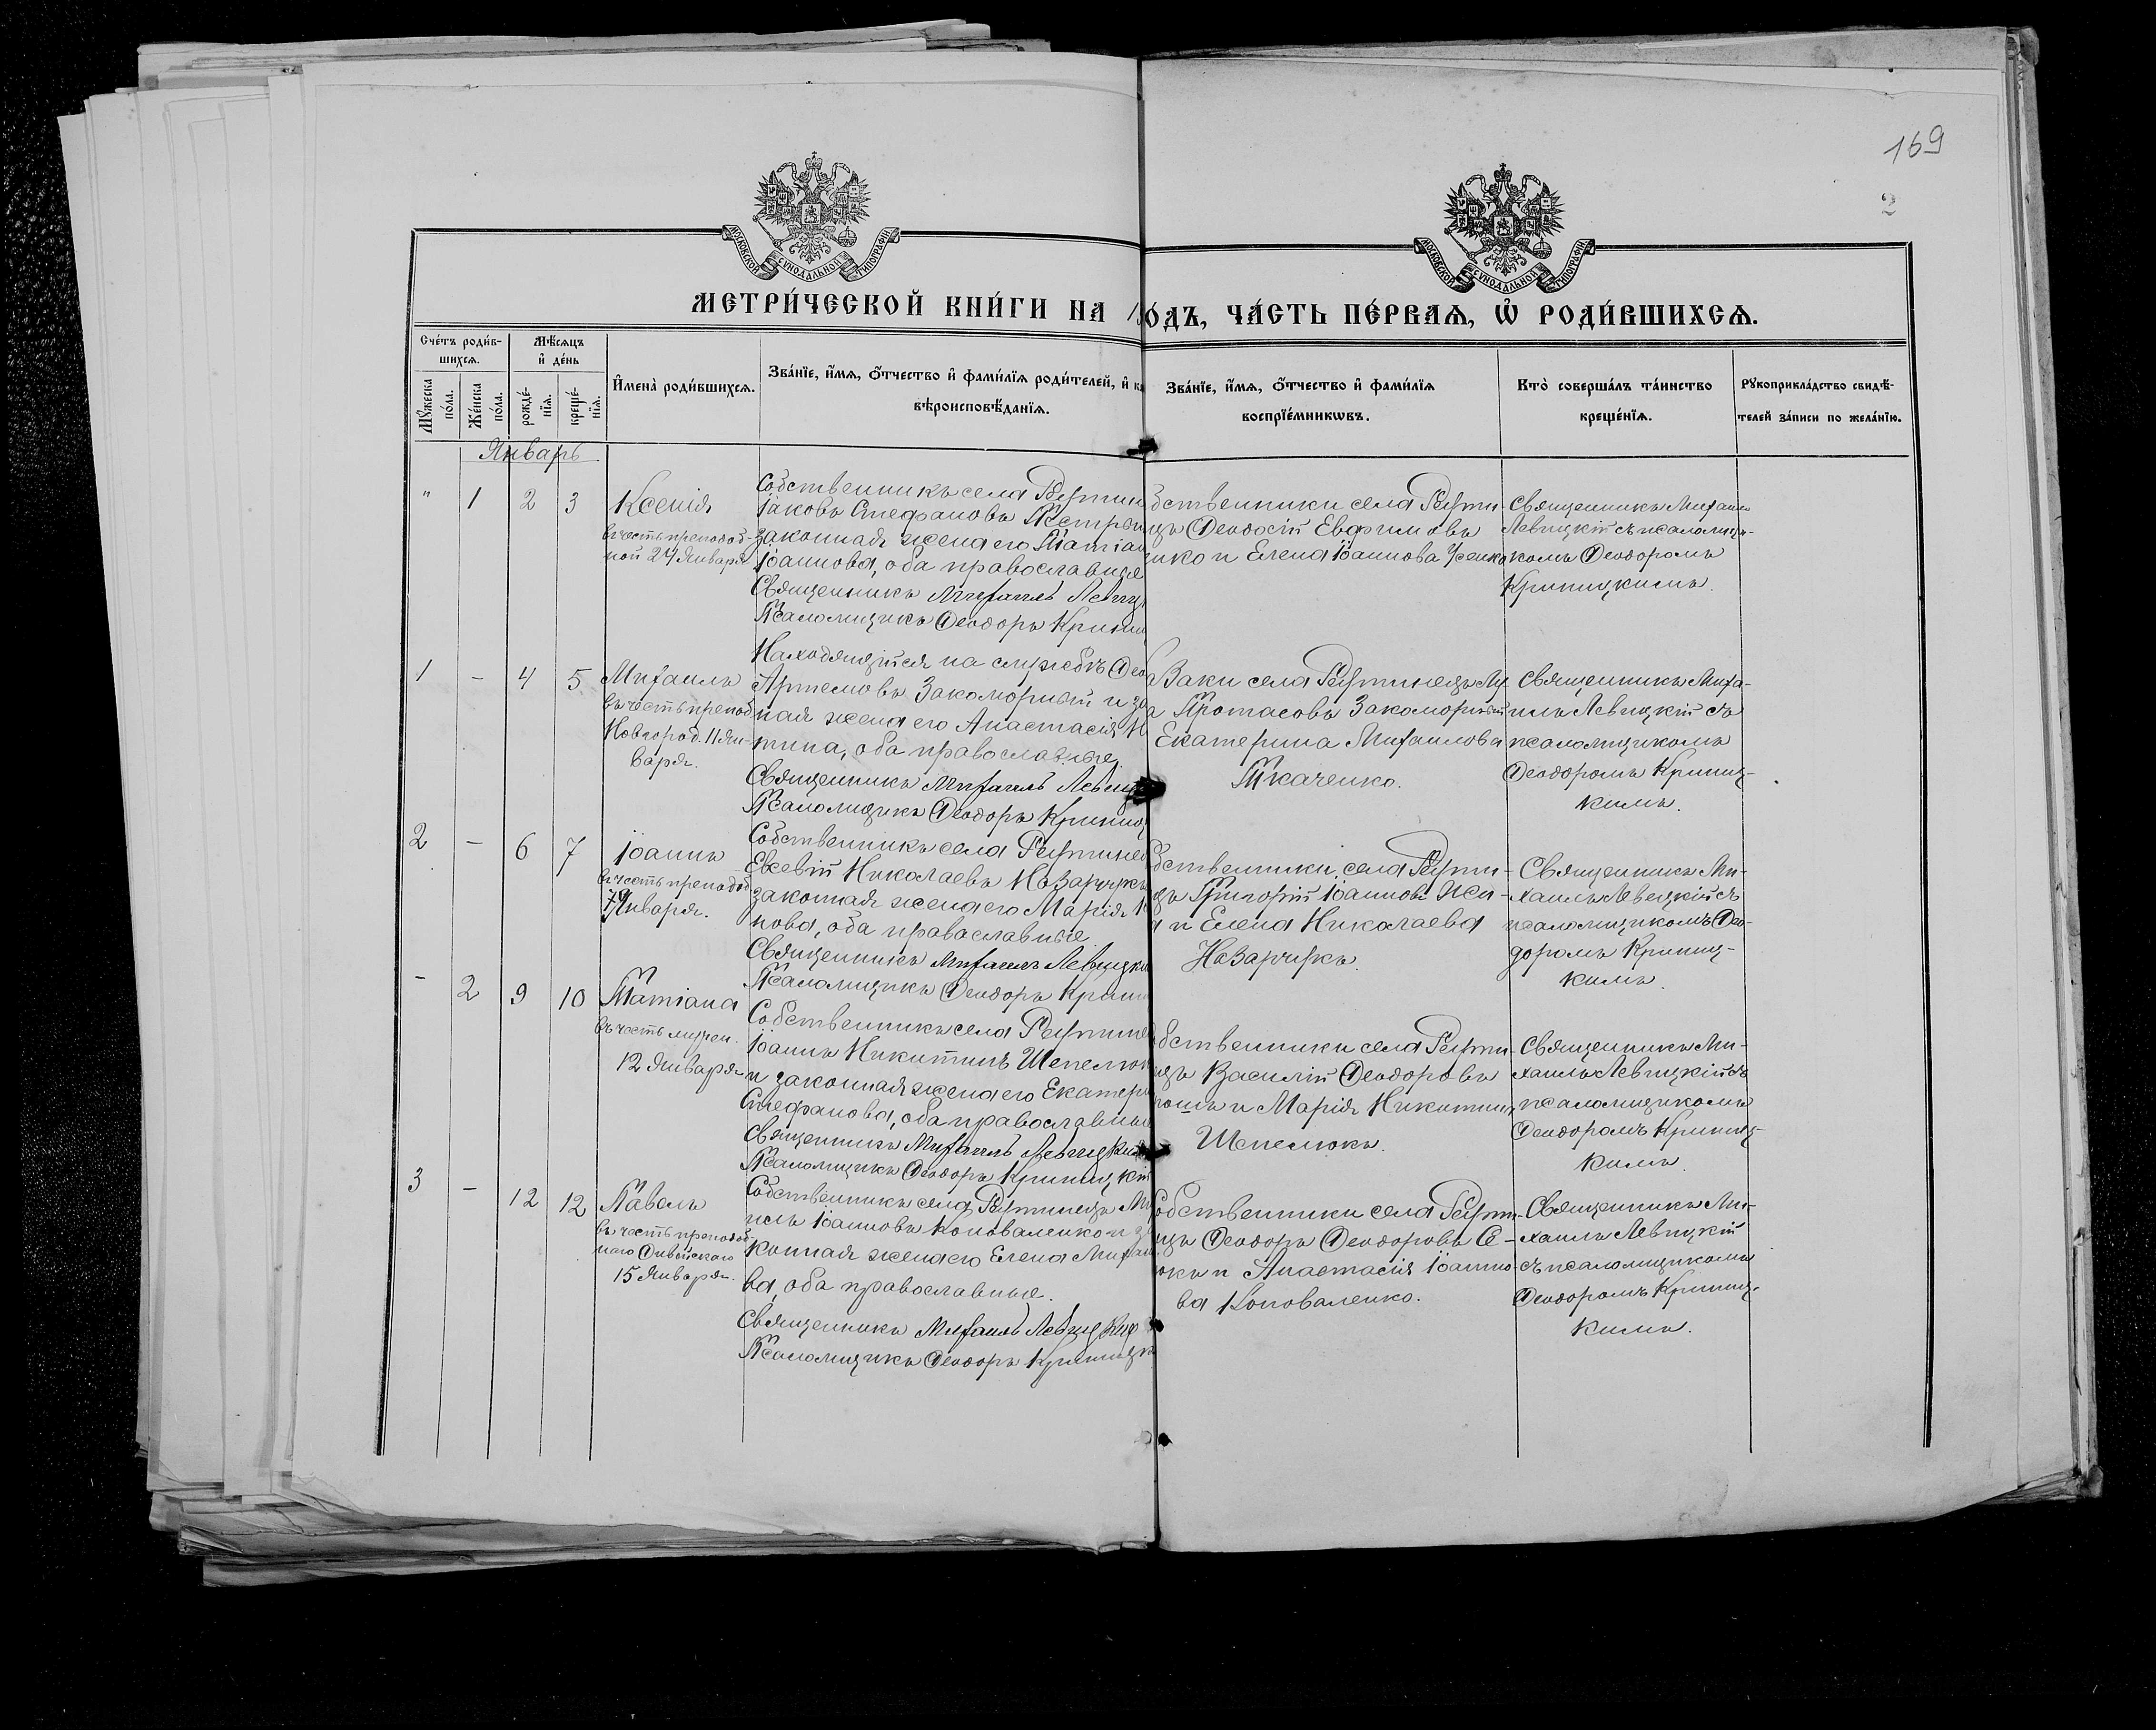 169
2
МОСКОВСКОЙ СѴНОДАЛЬНОЙ ТИПОГРАФІИ
МОСКОВСКОЙ СѴНОДАЛЬНОЙ ТИПОГРАФІИ
МЕТРИ́ЧЕСКОЙ КНИ́ГИ НА 1 ОДЪ, ЧА́СТЬ ПЕ́РВАѦ, Ѡ РОДИ́ВШИХСѦ.
Сче́тъ роди́в-
шихсѧ.
Мѣ́сѧцъ
и҆ де́нь
Мꙋ́жеска
по́ла.
Же́нска
по́ла.
рожде́-
нїѧ.
креще́-
нїѧ.
И҆мена̀ роди́вшихсѧ.
Зва́нїе, и҆́мѧ, ѻ҆́тчество и҆ фами́лїѧ роди́телей, и҆ ка
вѣроисповѣ́данїѧ.
Зва́нїе, и҆́мѧ, ѻ҆́тчество и҆ фами́лїѧ
воспрїе́мникѡвъ.
Кто̀ соверша́лъ та́инство
креще́нїѧ.
Рꙋкоприкла́дство свидѣ́-
телей за́писи по жела́нїю.
Январь
" 1 2 3
Ксенія
въ честь преподоб-
ной 24 Января
Собственникъ села Реутин
Іаковъ Стефановъ
законная жена его Татіан
Іоаннова, оба православные
Священникъ Михаилъ Левиц
Псаломщикъ Ѳеодоръ Крини
бственники села Реути-
цъ Ѳеодосій Евфимовъ
нко и Елена Іоаннова Усенко
Священникъ Михаилъ
Левицкій съ псаломщи-
комъ Ѳеодоромъ
Криницкимъ.
1 – 4 5
Михаилъ
въ честь препод
Новгород. 11 Ян-
варя.
Находящійся на службѣ Ѳео
Артемовъ Закоморный и за
ная жена его Анастасія Н
тина, оба православные.
Священникъ Михаилъ Левиц
Псаломщикъ Ѳеодоръ Криниц
заки села Реутинецъ Лу
а Протасовъ Закоморный
Екатерина Михаилова
Ткаченко.
Священникъ Миха-
илъ Левицкій съ
псаломщикомъ
Ѳеодоромъ Криниц-
кимъ.
2 – 6 7
Іоаннъ
въ честь преподоб
7 Января.
Собственникъ села Реутине
Евсевій Николаевъ Назарчукъ
законная жена его Марія
нова, оба православные
Священникъ Михаилъ Левицки
Псаломщикъ Ѳеодоръ Крини
бственники села Реути-
цъ Григорій Іоанновъ
и Елена Николаева
Назарчукъ.
Священникъ Ми-
хаилъ Левицкій съ
псаломщикомъ Ѳео-
доромъ Криниц-
кимъ.
– 2 9 10
Татіана
въ честь мучен.
12 Января
Собственникъ села Реутине
Іоаннъ Никитинъ Шепелюк
и законная жена его Екатери
Стефанова, оба православные
Священникъ Михаилъ Левицкій
Псаломщикъ Ѳеодоръ Криницкій
бственники села Реути-
цъ Василій Ѳеодоровъ
и Марія Никитина
Шепелюкъ.
Священникъ Ми-
хаилъ Левицкій съ
псаломщикомъ
Ѳеодоромъ Криниц-
кимъ.
3 – 12 12
Павелъ
въ честь преподоб-
наго Ѳивейскаго
15 Января.
Собственникъ села Реутинецъ Ми
илъ Іоанновъ Коноваленко и за
конная жена его Елена Михаи
ва, оба православные.
Священникъ Михаилъ Левицкій
Псаломщикъ Ѳеодоръ Криницк
обственники села Реути-
цъ Ѳеодоръ Ѳеодоровъ
и Анастасія Іоанно-
ва Коноваленко.
Священникъ Ми-
хаилъ Левицкій
съ псаломщикомъ
Ѳеодоромъ Криниц-
кимъ.